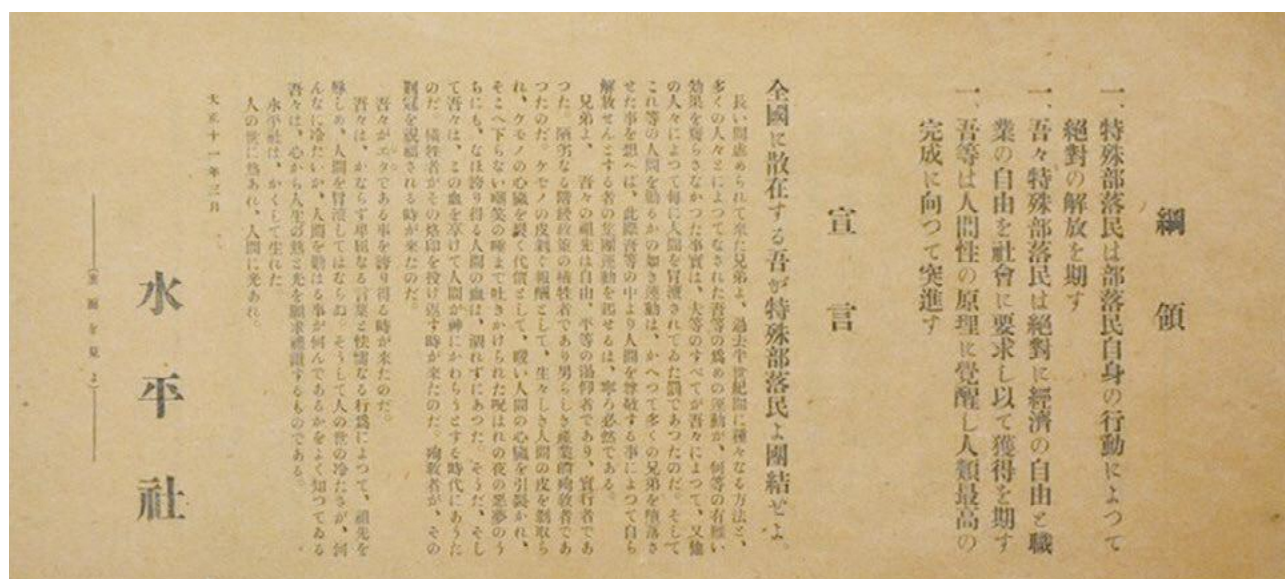 綱領
一、特殊部落民は部落民自身の行動によつて
絶對の解放を期す
一、吾々特殊部落民は絶對に經濟の自由と職
業の自由を社會に要求し以て獲得を期す
一、吾等は人間性の原理に覺醒し人類最高の
完成に向つて突進す
宣言
全國に散在する吾が特殊部落民よ團結せよ。
長い間虐められて來た兄弟よ、過去半世紀間に種々なる方法と、
多くの人々とによつてなされた吾等の爲めの運動が、何等の有難い
効果を齎らさなかつた事實は、夫等のすべてが吾々によつて、又他
の人々によつて毎に人間を冒涜されてゐた罰であつたのだ。そして
これ等の人間を勦るかの如き運動は、かへつて多くの兄弟を堕落さ
せた事を想へば、此際吾等の中より人間を尊敬する事によつて自ら
解放せんとする者の集團運動を起せるは、寧ろ必然である。
兄弟よ、吾々の祖先は自由、平等の渇仰者であり、實行者であ
つた。陋劣なる階級政策の犠牲者であり男らしき産業的殉教者であ
つたのだ。ケモノの皮剥ぐ報酬として、生々しき人間の皮を剥取ら
れ、ケモノの心臓を裂く代價として、暖い人間の心臓を引裂かれ、
そこへ下らない嘲笑の唾まで吐きかけられた呪はれの夜の惡夢のう
ちにも、なほ誇り得る人間の血は、涸れずにあつた。そうだ、そし
て吾々は、この血を享けて人間が神にかわらうとする時代にあうた
のだ。犠牲者がその烙印を投げ返す時が來たのだ。殉教者が、その
荊冠を祝福される時が來たのだ。
吾々がエタである事を誇り得る時が來たのだ。
吾々は、かならず卑屈なる言葉と怯懦なる行爲によつて、祖先を
辱しめ、人間を冒涜してはならぬ。そうして人の世の冷たさが、何
んなに冷たいか、人間を勦はる事が何んであるかをよく知つてゐる
吾々は、心から人生の熱と光を願求禮讃するものである。
水平社は、かくして生れた。
人の世に熱あれ、人間に光あれ。
大正十一年三月
水平社
（裏面を見よ）